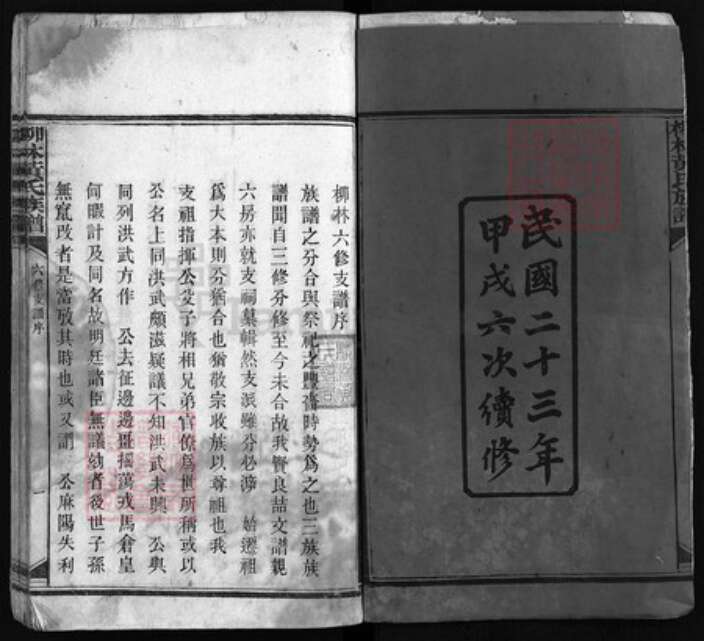 民國二十三年
甲戌六次續修
柳林六修支譜序
族譜之分合與祭祀之豐嗇時勢爲之也三族族
譜聞自三修分修至今未合故我實良喆文譜親
六房亦就支祠纂輯然支派雖分必溯 始遷祖
爲大本則分猶合也猶敬宗收族以尊祖也我
支祖指揮公父子將相兄弟官僚爲世所稱或以
公名上同洪武頗滋疑議不知洪武未興 公與
同列洪武方作 公去征邊邊疆搖蕩戎馬倉皇
何暇計及同名故明廷諸臣無議劾者後世子孫
無竄改者是當攷其時也或又謂 公麻陽失利
柳林黃氏族譜
六修支譜序
一